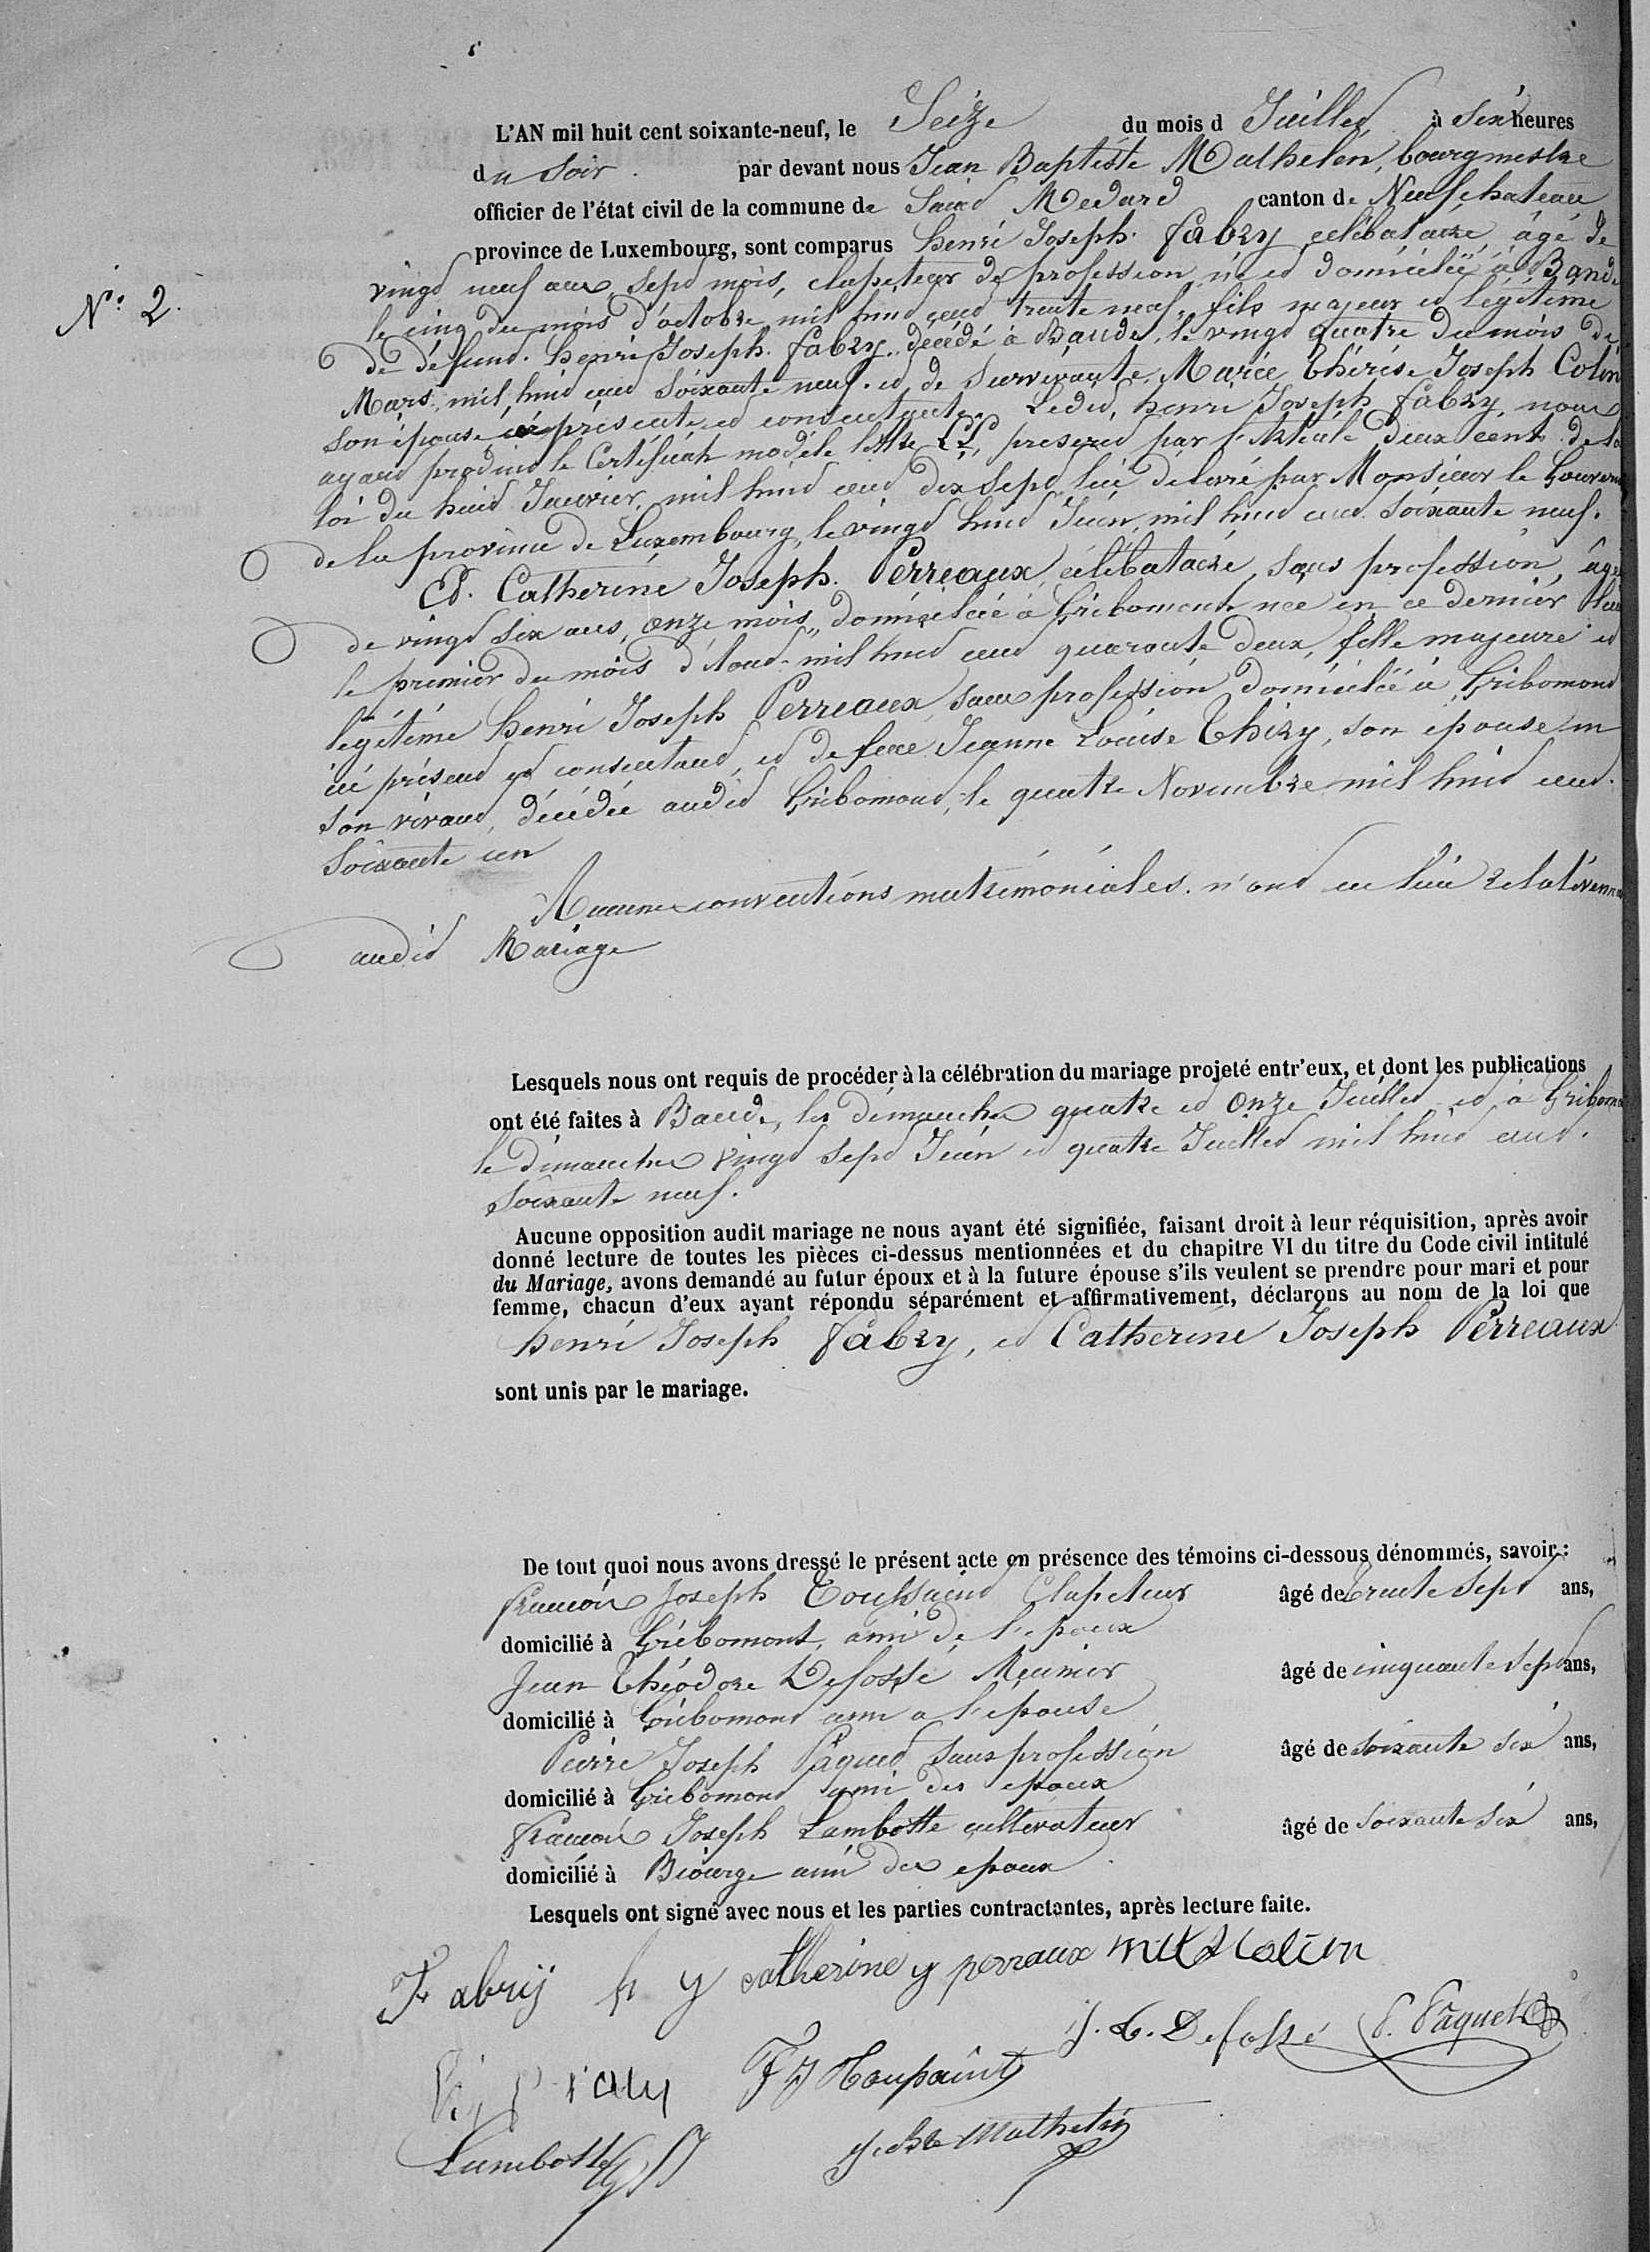 L'AN mil huit cent soixante-neuf, le Seize du mois d Juillet à Six heures
du Soir. par devant nous Jean Baptiste Mathelin, bourgmestre
officier de l'état civil de la commune de Saint Medard canton de Neufchateau
province de Luxembourg, sont comparus Henri Joseph Fabry célibataire, âgé de
N° 2.
vingt neuf ans, sept mois, clapeteur de profession, né et domicilié à Bande
le cinq du mois d'octobre mil huit cent trente neuf, fils majeur et légitime
de défunt Henri Joseph Fabry, décédé à Bande, le vingt quatre du mois de
Mars, mil huit cent Soixante neuf. et de Survivante Marie Thérése Joseph Colin
Son épouse ici présente et consentante. Ledit, Henri Joseph Fabry, nous
ayant produit le Certificat modèle lettre LL, prescrit par l'Article Deux cent de la
loi du huit Janvier, mil huit cent dix Sept lui délivré par Monsieur le Gouvern
de la province de Luxembourg, le vingt huit Juin, mil huit cent Soixante neuf.
Et. Catherine Joseph Perreaux, célibataire, Sans profession, âgé
de vingt Six ans, onze mois, domiciliée à Gribomont née en ce dernier lieu
le premier du mois d'Aout mil huit cent quarante deux, fille majeure et
légitime Henri Joseph Perreaux, Sans profession domicilié à Gribomont
ici présent et consentant, et de feue Jeanne Louise Thiry, son épouse en
Son vivant, décédée audit Gribomont, le quatre Novembre mil huit cent.
Soixante un
Aucunes conventions matrimoniales n'ont eu lieu relativem
audit Mariage
Lesquels nous ont requis de procéder à la célébration du mariage projeté entr'eux, et dont les publications
ont été faites à Bande, les dimanches quatre et onze Juillet et à Gribom
le dimanches vingt sept Juin et quatre Juillet mil huit cent.
Soixante neuf.
Aucune opposition audit mariage ne nous ayant été signifiée, faisant droit à leur réquisition, après avoir
donné lecture de toutes les pièces ci-dessus mentionnées et du chapitre VI du titre du Code civil intitulé
du Mariage, avons demandé au futur époux et à la future épouse s'ils veulent se prendre pour mari et pour
femme, chacun d'eux ayant répondu séparément et affirmativement, déclarons au nom de la loi que
Henri Joseph Fabry, et Catherine Joseph Perreaux
sont unis par le mariage.
De tout quoi nous avons dressé le présent acte en présence des témoins ci-dessous dénommés, savoir :
François Joseph Toussaint Clapeteur âgé de trente Sept ans,
domicilié à Gribomont, ami de l'epoux
Jean Théodore Defossé Meunier âgé de cinquante Sept ans,
domicilié à Gribomont ami a l'epouse
Pierre Joseph Paquet Sans profession âgé de Soixante Six ans,
domicilié à Gribomont ami des epoux
François Joseph Lambotte cultivateur âgé de Soixante Six ans,
domicilié à Biourge ami des epoux
Lesquels ont signé avec nous et les parties contractantes, après lecture faite.
Fabrÿ h y catherine y perraux m t j colin
j. t. Defossé P. Paquet
F J Toussaint
Lambotte f J J. Bte Mathelin